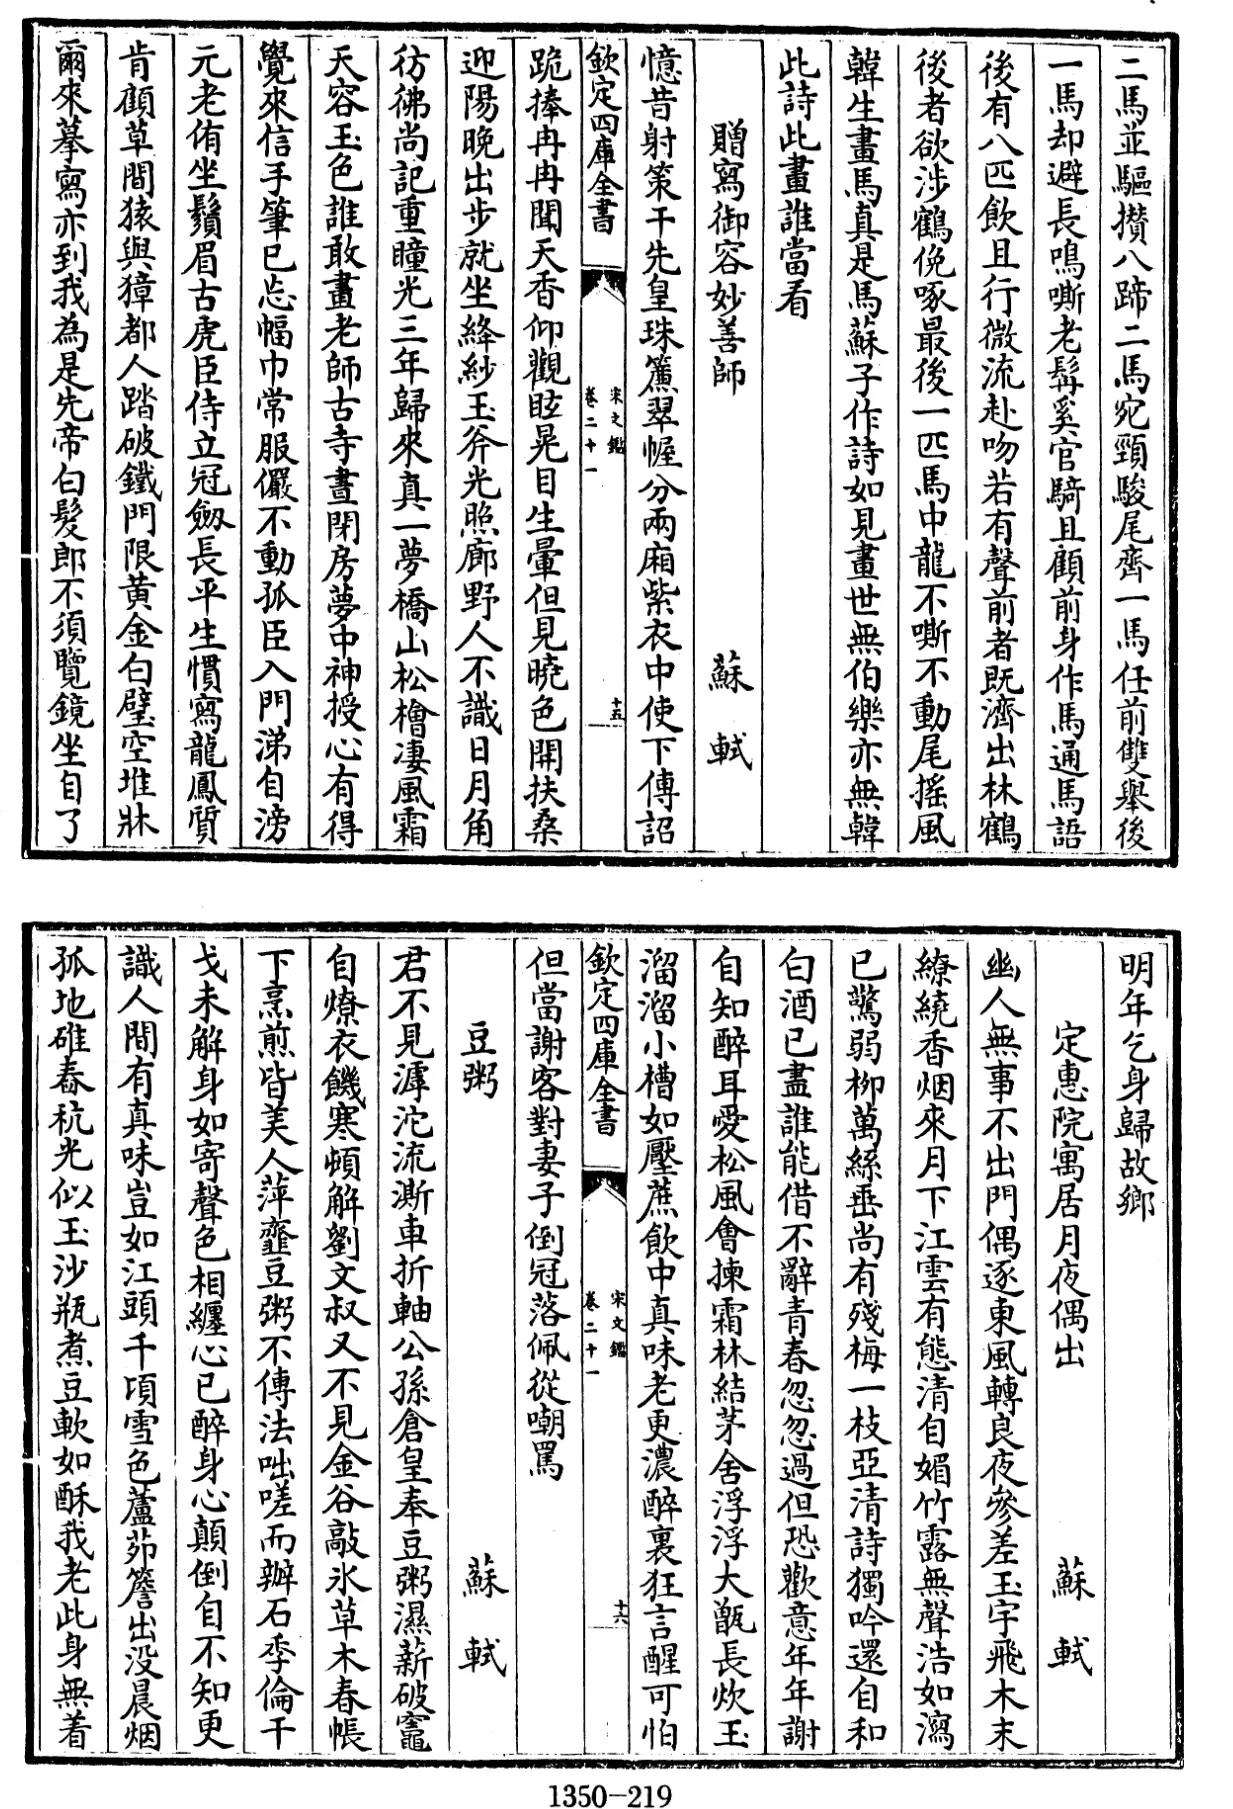 二馬並驅攢八蹄二馬宛頸駿尾齊一馬任前雙舉後
一馬却避長鳴嘶老髯奚官騎且顧前身作馬通馬語
後有八匹飲且行微流赴吻若有聲前者既濟出林鶴
後者欲涉鶴俛啄最後一匹馬中龍不嘶不動尾搖風
韓生畫馬真是馬蘇子作詩如見畫世無伯樂亦無韓
此詩此畫誰當看
贈寫御容妙善師 蘇軾
憶昔射策干先皇珠簾翠幄分兩廂紫衣中使下傳詔
欽定四庫全書 宋文鑑 卷二十一 十五
跪捧冉冉聞天香仰觀眩晃目生暈但見曉色開扶桑
迎陽晚出步就坐絳紗玉斧光照廊野人不識日月角
彷彿尚記重瞳光三年歸來真一夢橋山松檜凄風霜
天容玉色誰敢畫老師古寺晝閉房夢中神授心有得
覺來信手筆已忘幅巾常服儼不動孤臣入門涕自滂
元老侑坐鬚眉古虎臣侍立冠劒長平生慣寫龍鳳質
肯顧草間猿與獐都人踏破鐵門限黄金白璧空堆牀
爾來摹寫亦到我為是先帝白髮郎不須覽鏡坐自了
明年乞身歸故鄉
定惠院寓居月夜偶出 蘇軾
幽人無事不出門偶逐東風轉良夜參差玉宇飛木末
繚繞香烟來月下江雲有態清自媚竹露無聲浩如瀉
已驚弱柳萬絲垂尚有殘梅一枝亞清詩獨吟還自和
白酒已盡誰能借不辭青春忽忽過但恐歡意年年謝
自知醉耳愛松風會揀霜林結茅舍浮浮大甑長炊玉
溜溜小槽如壓蔗飲中真味老更濃醉裏狂言醒可怕
欽定四庫全書 宋文鑑 卷二十一 十六
但當謝客對妻子倒冠落佩從嘲罵
豆粥 蘇軾
君不見滹沱流澌車折軸公孫倉皇奉豆粥濕薪破竈
自燎衣饑寒頓解劉文叔又不見金谷敲氷草木春帳
下烹煎皆美人萍虀豆粥不傳法咄嗟而辦石季倫干
戈未解身如寄聲色相纏心已醉身心顛倒自不知更
識人間有真味豈如江頭千頃雪色蘆茆簷出没晨烟
孤地碓舂秔光似玉沙瓶煮豆軟如酥我老此身無着
1350-219